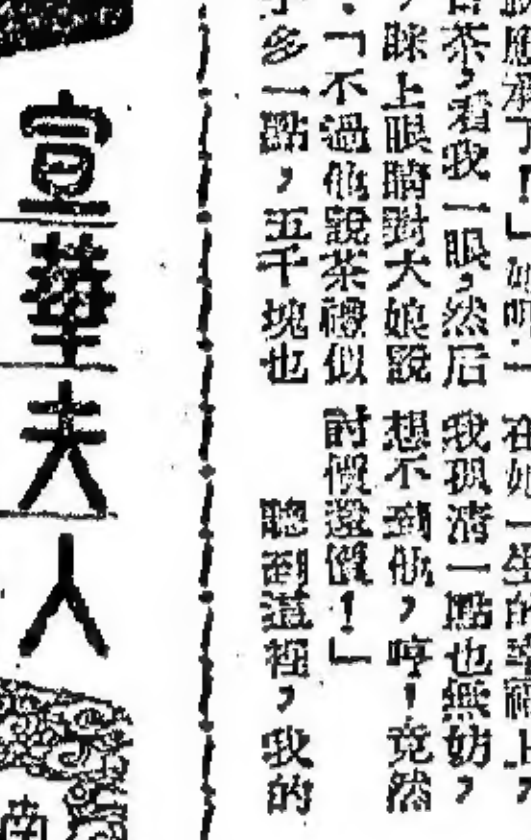 應承了！」她呷一
茶，看我一眼，然后
，睬上眼睛對大娘說
：「不過他說茶禮似
多一點，五千塊也
在她一生的幸福上，
我孤清一點也無妨，
想不到他，哼！竟然
討價還價！」
聽到這裡，我的
宣華夫人